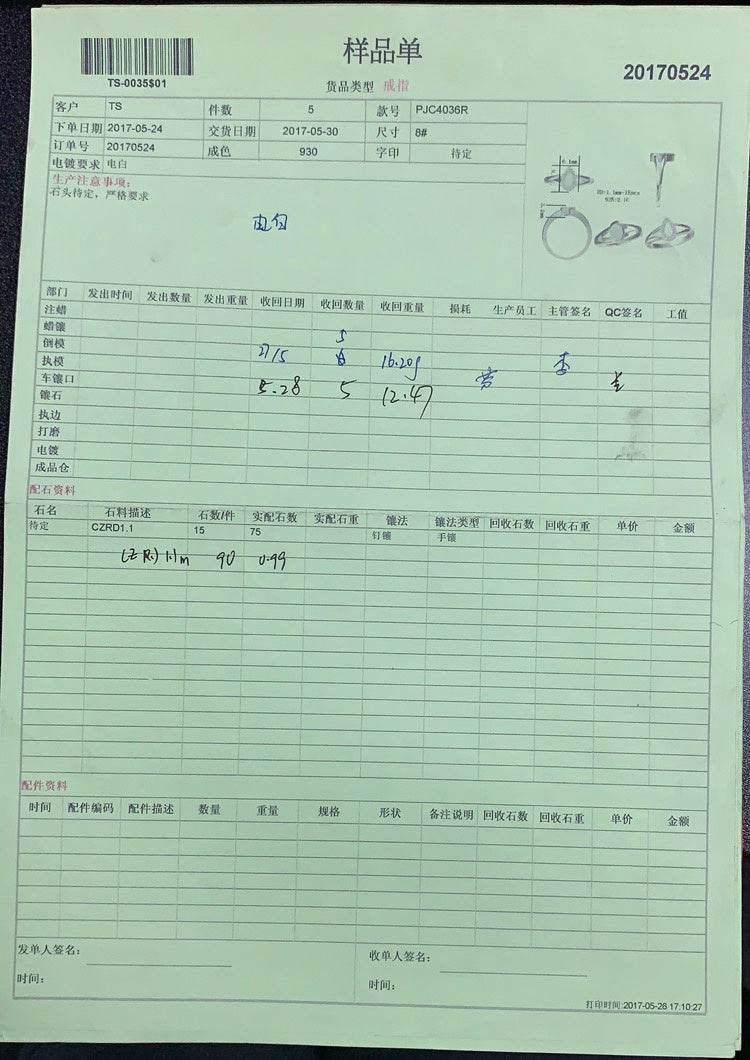 样品单
TS-0035$01
货品类型 戒指
20170524
客户 TS 件数 5 款号 PJC4036R
下单日期 2017-05-24 交货日期 2017-05-30 尺寸 8#
订单号 20170524 成色 930 字印 待定
电镀要求 电白
生产注意事项:
石头待定，严格要求
电白
部门 发出时间 发出数量 发出重量 收回日期 收回数量 收回重量 损耗 生产员工 主管签名 QC签名 工值
注蜡
蜡镶 5
倒模
执模 27/5 16.20g
车镶口
镶石 5.28 5 12.47
执边
打磨
电镀
成品仓
配石资料
石名 石料描述 石数/件 实配石数 实配石重 镶法 镶法类型 回收石数 回收石重 单价 金额
待定 CZRD1.1 15 75 钉镶 手镶
90 0.99
配件资料
时间 配件编码 配件描述 数量 重量 规格 形状 备注说明 回收石数 回收石重 单价 金额
发单人签名: 收单人签名:
时间: 时间:
打印时间:2017-05-26 17:10:27